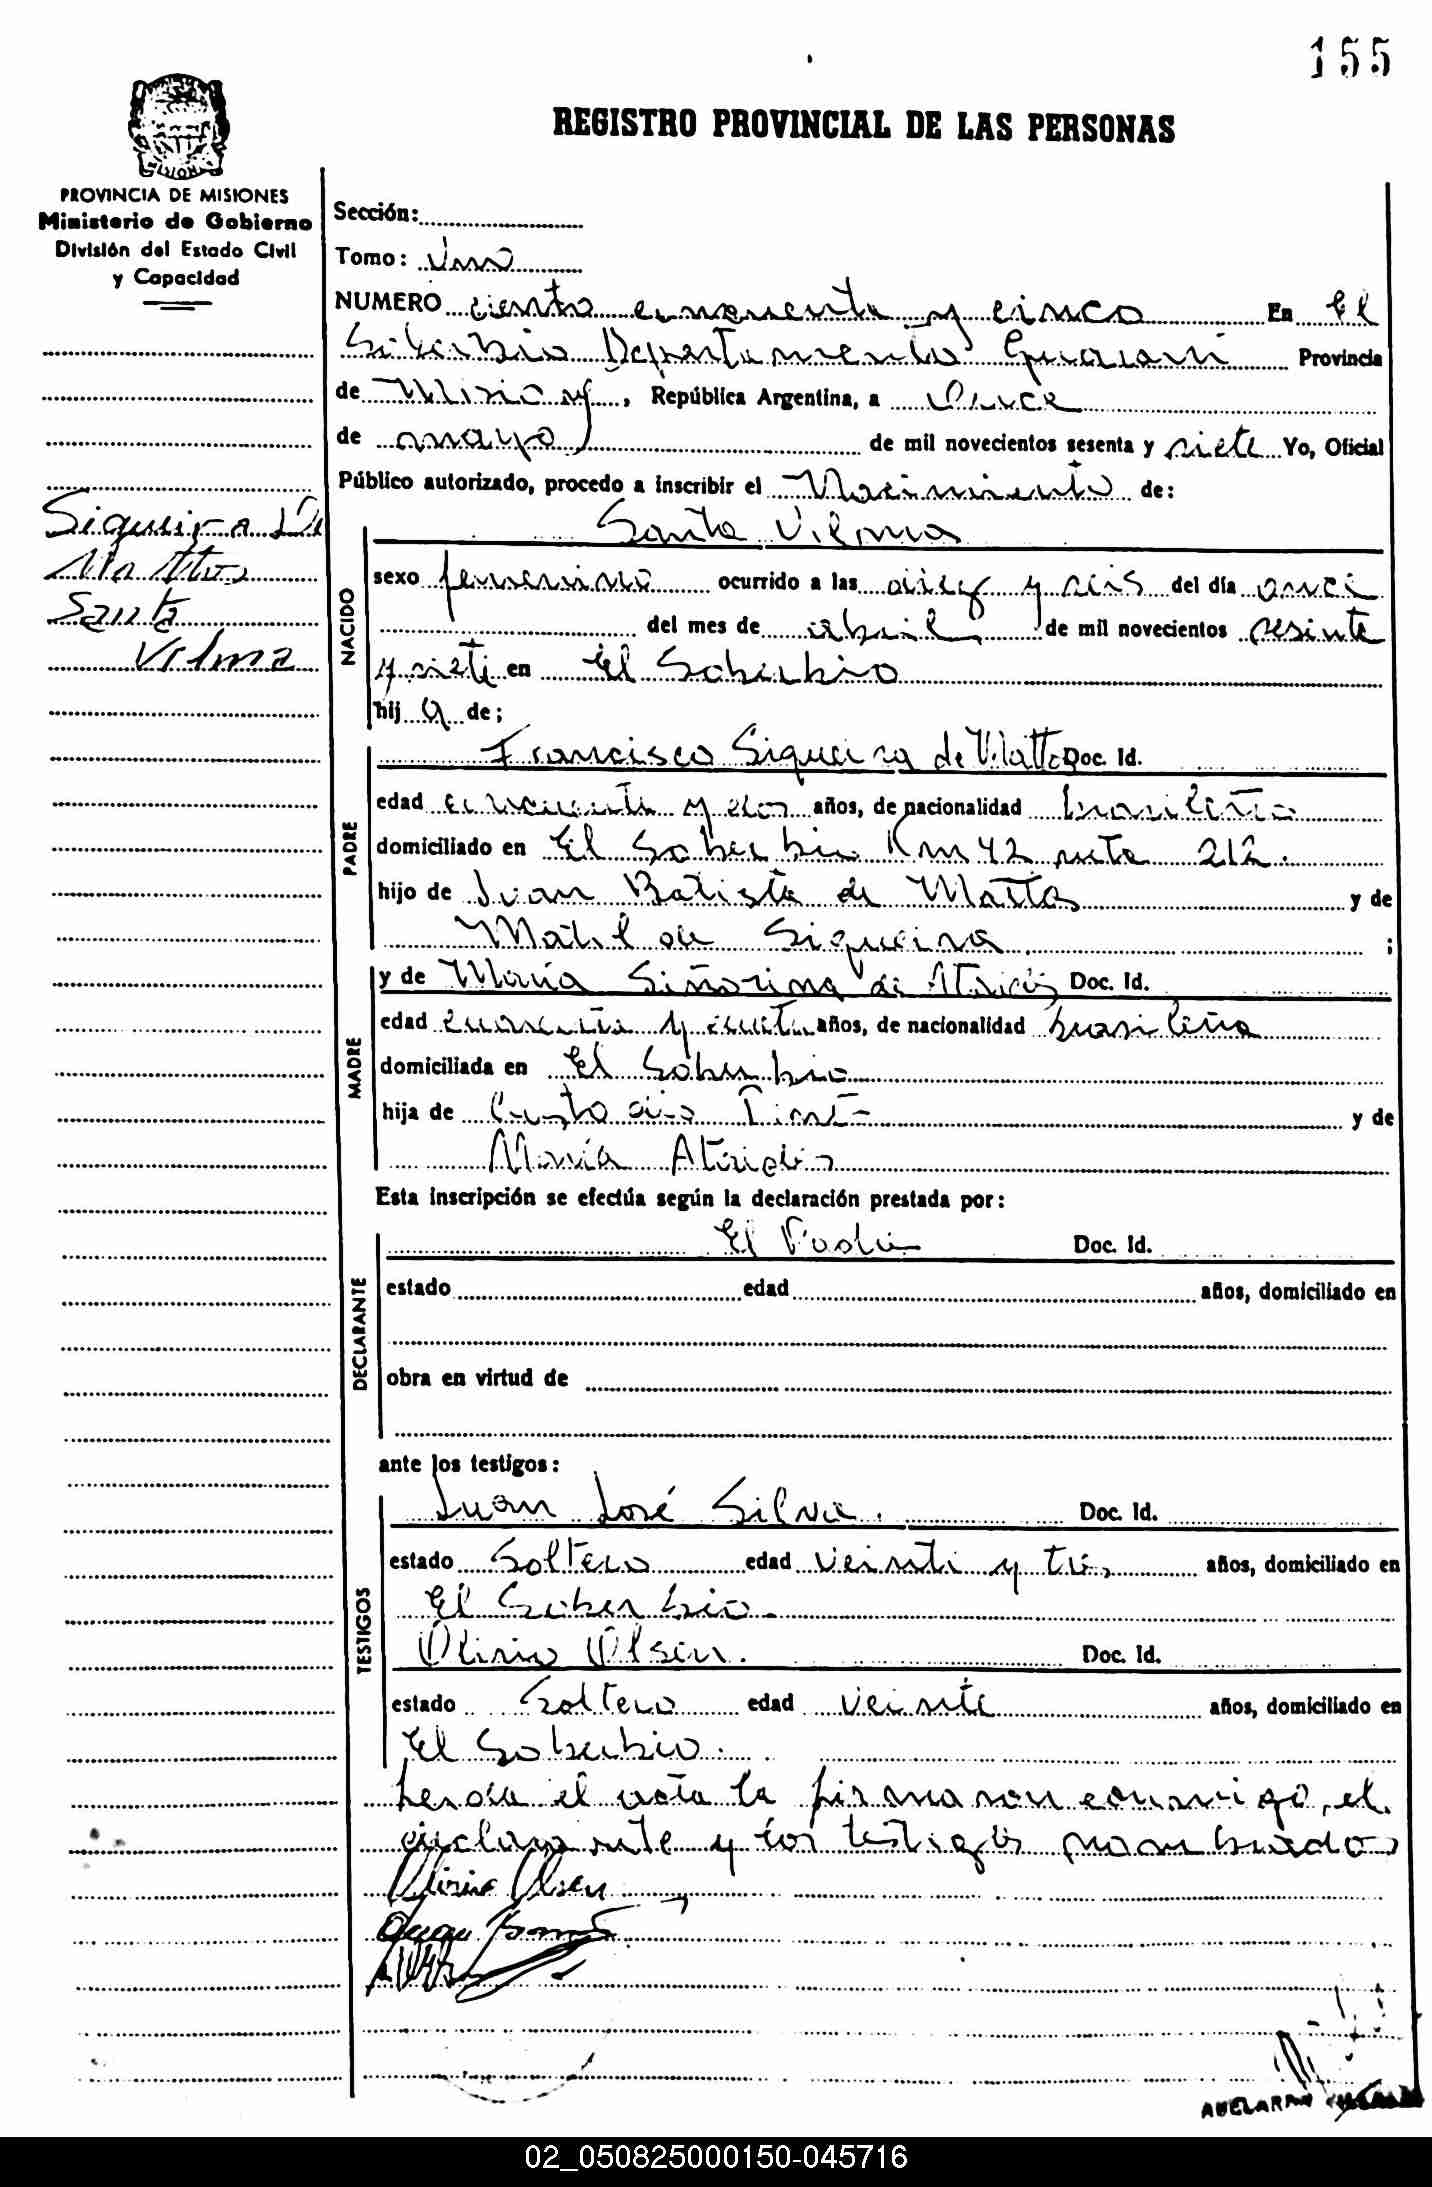 155
REGISTRO PROVINCIAL DE LAS PERSONAS
PROVINCIA DE MISIONES
Ministerio de Gobierno
División del Estado Civil
y Capacidad
Siqueira De
Mattos
Santa
Vilma
Sección:
Tomo: Uno
NUMERO ciento cincuenta y cinco En El
Soberbio Departamento Guaraní Provincia
de Misiones, República Argentina, a once
de mayo de mil novecientos sesenta y siete Yo, Oficial
Público autorizado, procedo a inscribir el Nacimiento de:
Santa Vilma
NACIDO
sexo femenino ocurrido a las diez y seis del día once
del mes de abril de mil novecientos sesenta
y siete en El Soberbio
hij a de;
PADRE
Francisco Siqueira de Matto Doc. Id.
edad cincuenta y dos años, de nacionalidad brasileña
domiciliado en El Soberbio Km 42 ruta 212.
hijo de Juan Batista de Mattos y de
Matilde Siqueira ;
MADRE
y de María Señorina de Doc. Id.
edad cuarenta y años, de nacionalidad brasileña
domiciliada en El Soberbio
hija de Custodio y de
María
Esta inscripción se efectúa según la declaración prestada por:
DECLARANTE
El Padre Doc. Id.
estado edad años, domiciliado en
obra en virtud de
ante los testigos:
TESTIGOS
Juan José Silva. Doc. Id.
estado Soltero edad veinte y tres años, domiciliado en
El Soberbio.
Olirio Olsen. Doc. Id.
estado Soltero edad veinte años, domiciliado en
El Soberbio.
Leida el acta la firmaron conmigo, el
declarante y los testigos nombrados
Olirio Olsen
02_050825000150-045716